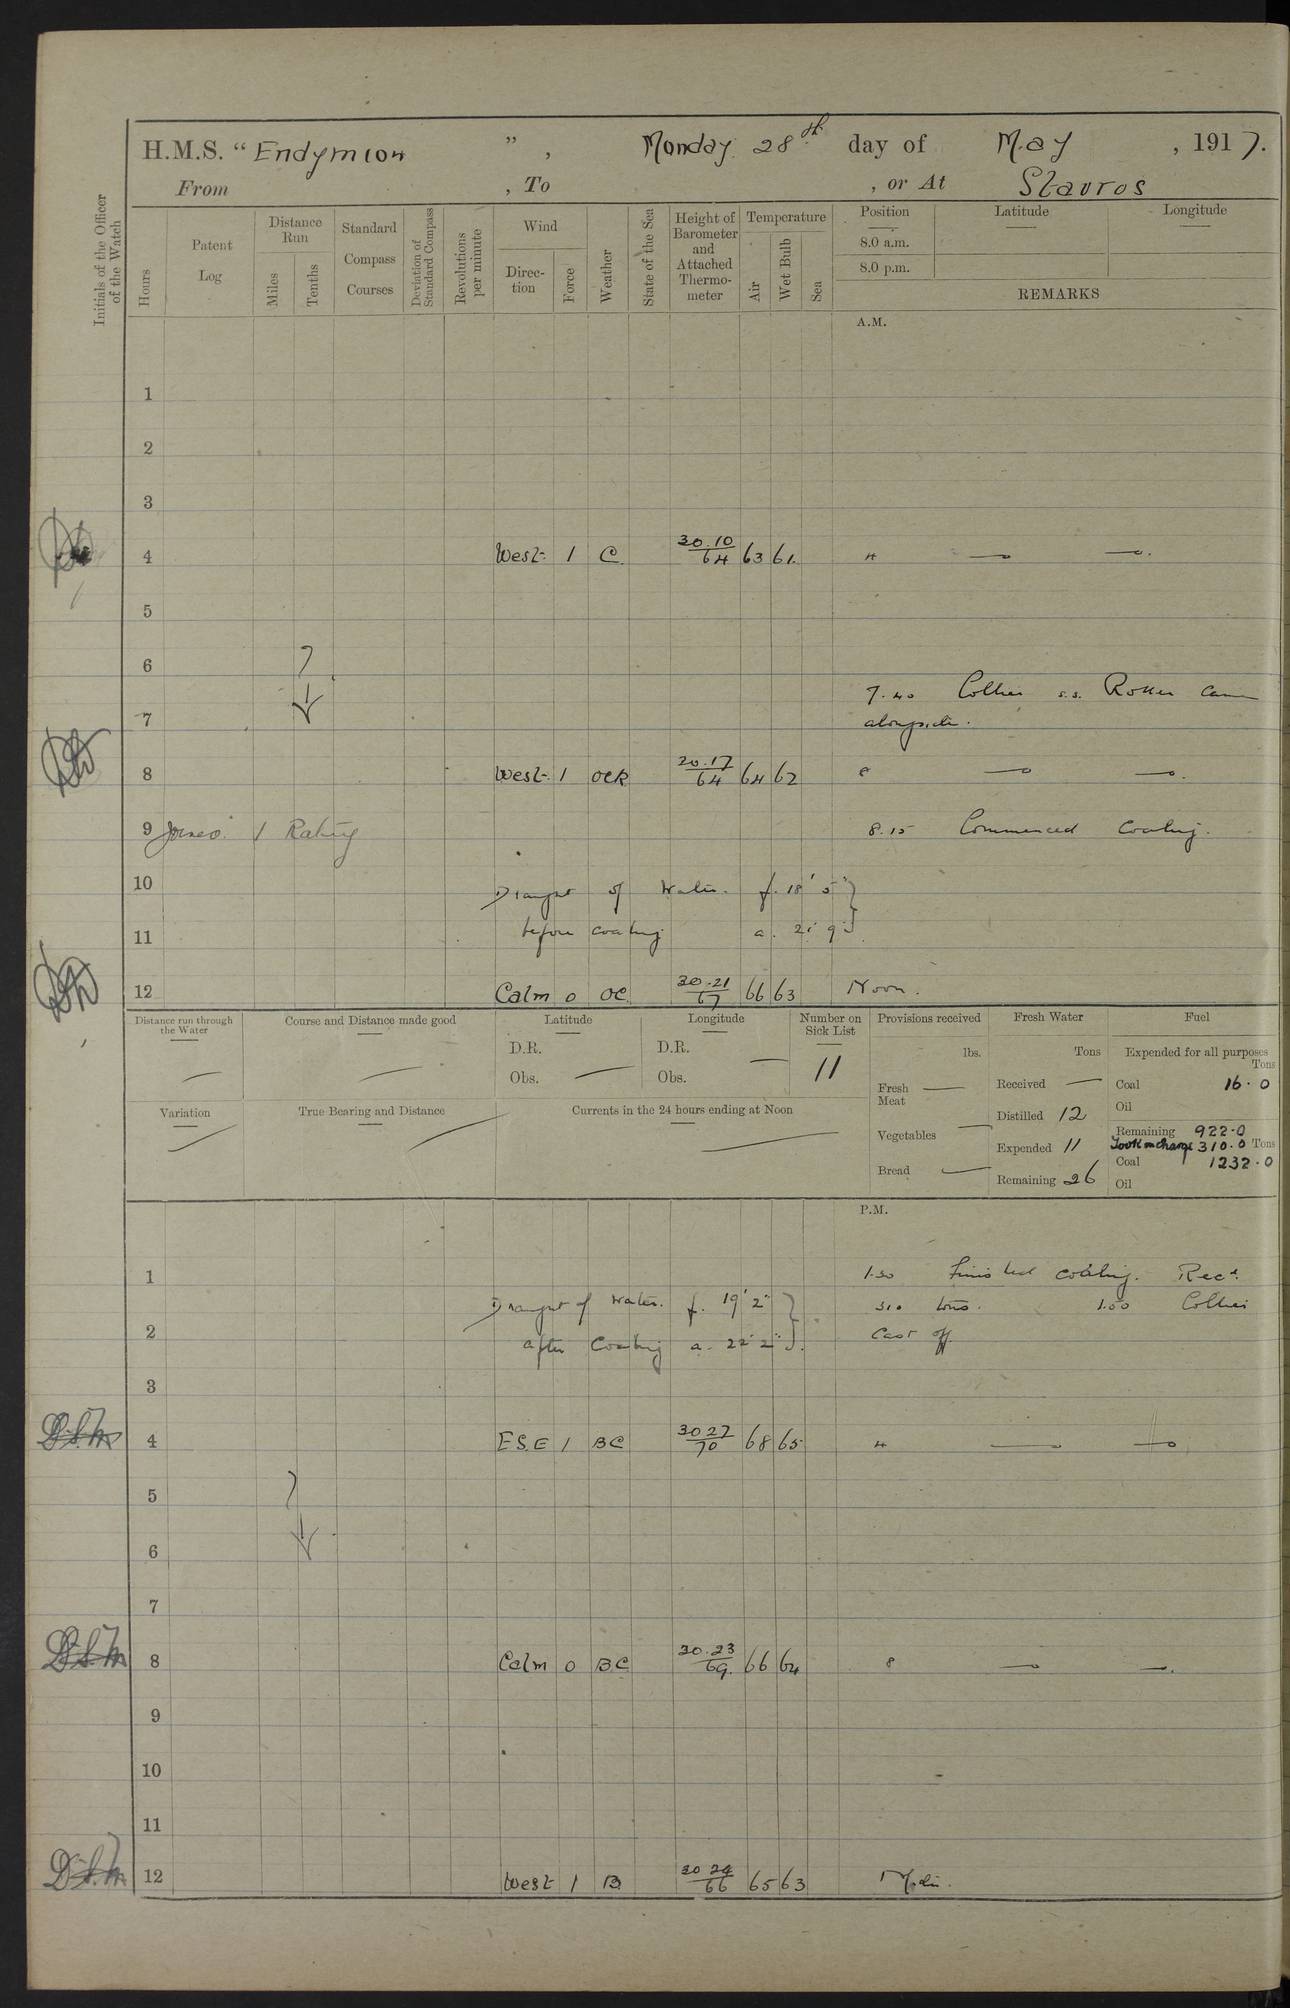 H.M.S. “Endymion ”, Monday 28th day of May, 1917.
From , To , or At Stavros
Initials of the Officer of the Watch
Hours
Patent Log
Distance Run
Miles
Tenths
Standard Compass Courses
Deviation of Standard Compass
Revolutions per minute
Wind
Direc-tion
Force
Weather
State of the Sea
Height of Barometer and Attached Thermo-meter
Temperature
Air
Wet Bulb
Sea
Position
Latitude
Longitude
8.0 a.m.
8.0 p.m.
REMARKS
A.M.
1
2
3
4 West 1 C. 30.10/64 63 61. 4 — —.
5
6
7.40 Collier s.s. came
7 alongside.
8 West 1 OCR 30.17/64 64 62 8 — —.
9 Joined 1 Rating 8.15 Commenced Coaling.
10 Draught of Water. f. 18' 5"
11 before coaling a. 21' 9"
12 Calm 0 OC 30.21/67 66 63 Noon.
Distance run through the Water
Course and Distance made good
Latitude
D.R.
Obs. —
Longitude
D.R.
Obs. —
Number on Sick List
11
Provisions received
lbs.
Fresh Meat —
Vegetables —
Bread —
Fresh Water
Tons
Received —
Distilled 12
Expended 11
Remaining 26
Fuel
Expended for all purposes
Tons
Coal 16.0
Oil
Remaining 922.0
Took on charge 310.0 Tons
Coal 1232.0
Oil
Variation
True Bearing and Distance
Currents in the 24 hours ending at Noon
P.M.
1 1.30 Finished coaling. Recd.
Draught of Water. f. 19' 2" 310 tons. 1.50 Collier
2 Cast off
after Coaling a. 22' 2"
3
4 E.S.E 1 BC 30 27/70 68 65 4 — —
5
6
7
8 Calm 0 B.C 30.23/69. 66 64 8 — —.
9
10
11
12 West 1 B 30 24/66 65 63 Mid.